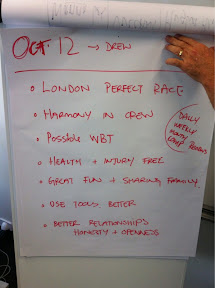 OCT. 12 → DREW
• LONDON PERFECT RACE
• HARMONY IN CREW
• POSSIBLE WBT
• HEALTH + INJURY FREE
• GREAT FUN + SHARING FAMILY.
• USE TOOLS BETTER
• BETTER RELATIONSHIPS
HONESTY + OPENNESS
DAILY
WEEKLY
MONTHLY
REVIEWS